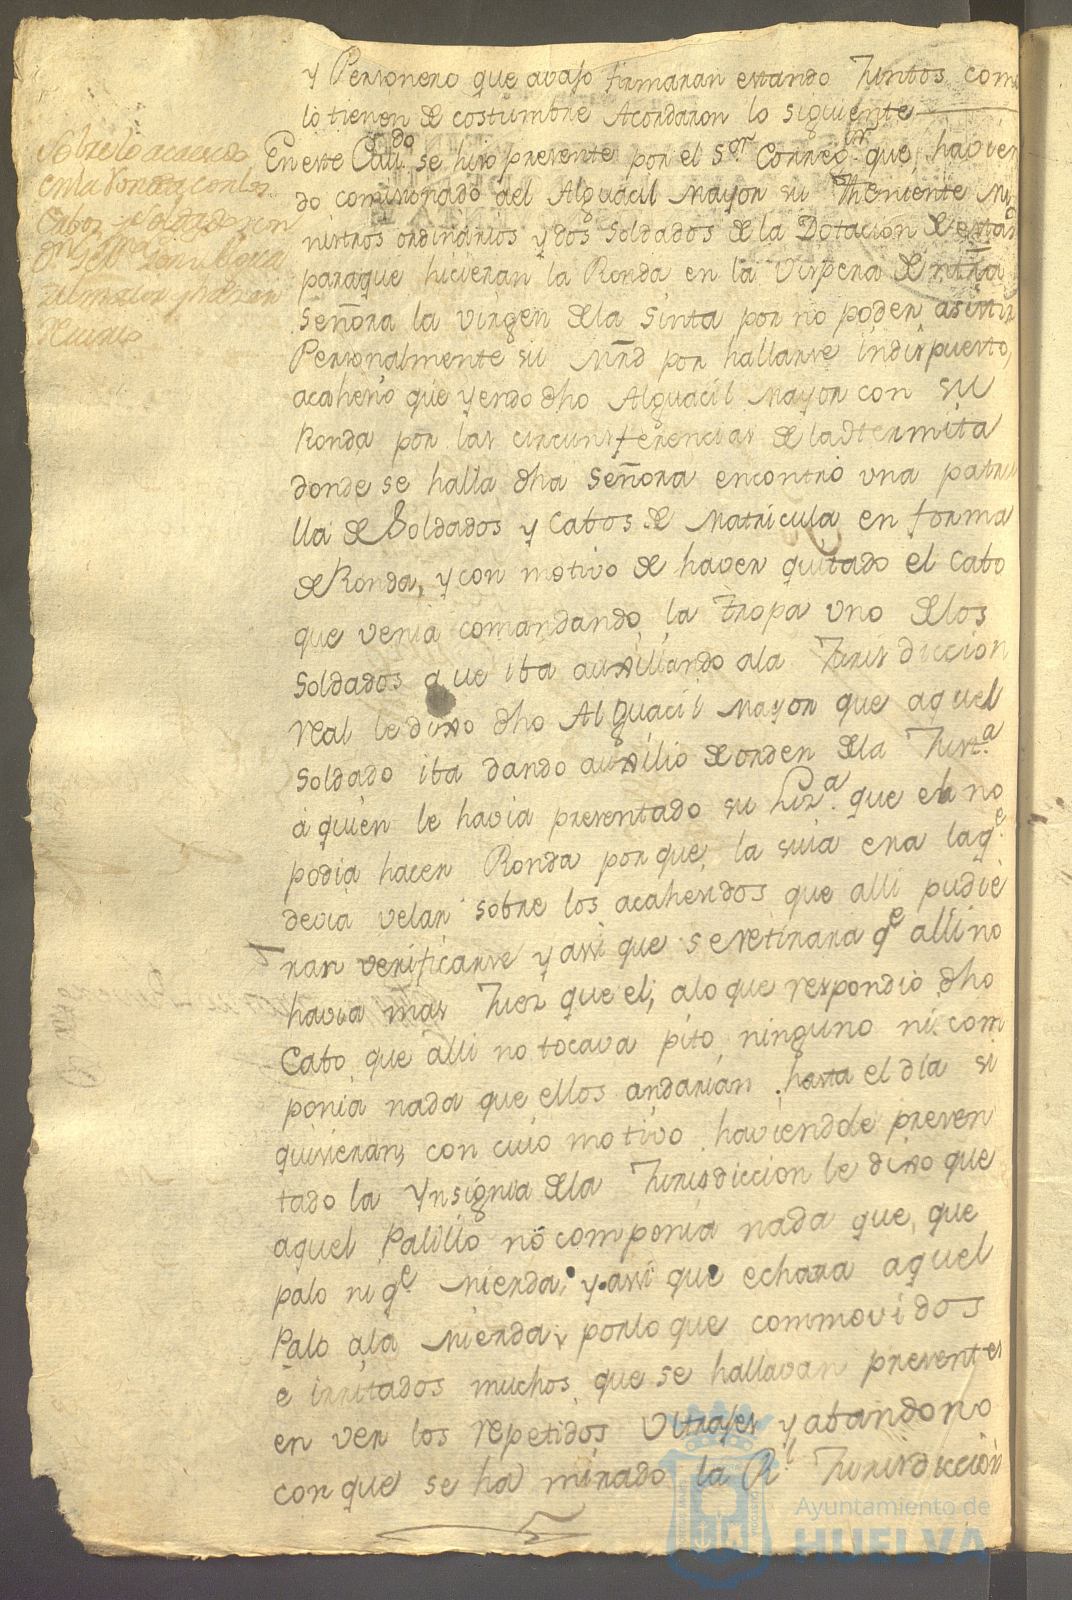 y Personero que avajo firmaran estando Juntos como
lo tienen de costumbre Acordaron lo siguiente
Sobre lo acaesido
en la Ronda con los
Cabos y soldados con
En este Cavdo. se hiso presente por el Sor. Correxor. que, havien
do comisionado del Alguacil Mayor su Theniente Mi
nistros ordinarios y dos soldados de la Dotacion de estas
paraque hicieran la Ronda en la Vispera de ntra
Señora la virgen de la Sinta por no poder asistir
Personalmente su Mrd por hallarse indispuesto,
acaheño que yendo dho Alguacil Mayor con su
Ronda por las circunsferencias de la dermita
donde se halla dha Señora encontró una patru
lla de Soldados y Cabos de Matricula en forma
de Ronda, y con motivo de haver quitado el Cabo
que venia comandando la tropa uno de los
soldados que iba auxiliando ala Jurisdiccion
real le dixo dho Alguacil Mayor que aquel
soldado iba dando auxilio de orden de la Justa.
á quien le havia presentado su Liza. que el no
podia hacer Ronda porque la suia era la qe.
devia velar sobre los acahesidos que alli pudie
ran verificarse y assi que se retirara qe alli no
havia mas Juez que el, alo que respondio dho
Cabo que alli no tocava pito ninguno ni com
ponia nada que ellos andarian hasta el dia si
quisieran, con cuio motivo haviendole presen
tado la Ynsignia de la Jurisdiccion le dixo que
aquel Palillo no componia nada que, que
palo ni qe mierda, y assi que echara aquel
Palo ala mierda, porlo que commovidos
e irritados muchos que se hallavan presentes
en ver los repetidos ultrajes y abandono
con que se ha mirado la Rl Jurisdiccion
Ayuntamiento de
HUELVA